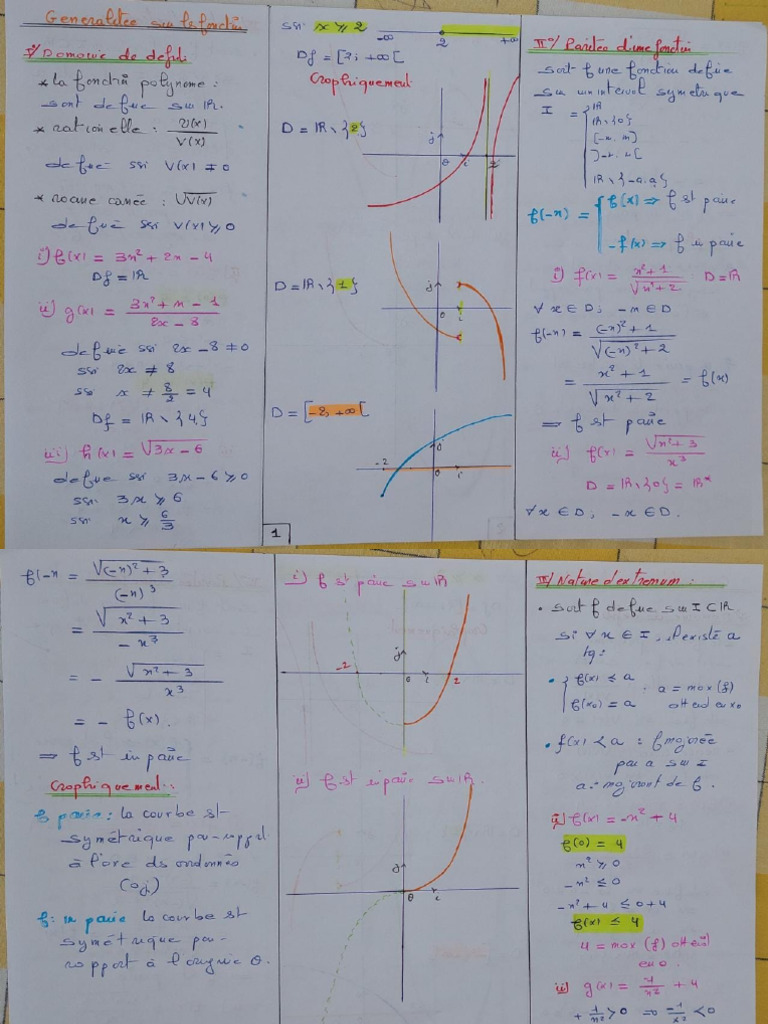 Generalitee sur les fonctin
I°/ Domaine de defil:
* la fonctin polynome :
sont defuie su IR.
* rationelle : U(x)/V(x)
defuie ssi V(x) ≠ 0
* racine carrée : √V(x)
defuie ssi V(x) ≥ 0
i) f(x) = 3x² + 2x - 4
Df = IR
ii) g(x) = (3x² + x - 1)/(2x - 8)
defuie ssi 2x - 8 ≠ 0
ssi 2x ≠ 8
ssi x ≠ 8/2 = 4
Df = IR \ {4}
iii) h(x) = √3x - 6
defuie ssi 3x - 6 ≥ 0
ssi 3x ≥ 6
ssi x ≥ 6/3
ssi x ≥ 2
-∞ 2 +∞
Df = [2; +∞[
Graphiquement
D = IR \ {2}
j 0 i 2
D = IR \ {1}
j 0 i
D = [-2, +∞[
-2 0 i
1
II°/ Paritee d'une fonctin
soit f une fonction defuie
su un interval symetrique
I = { IR
IR \ {0}
[-n, n]
]-n, n[
IR \ {-a, a}
f(-x) = { f(x) => f st paire
-f(x) => f inpaire
i) f(x) = (x² + 1)/√x² + 2 D = IR
∀ x ∈ D ; -x ∈ D
f(-x) = ((-x)² + 1)/√(-x)² + 2
= (x² + 1)/√x² + 2 = f(x)
=> f st paire
ii) f(x) = √x² + 3/x³
D = IR \ {0} = IR*
∀ x ∈ D ; -x ∈ D.
f(-x = √(-x)² + 3/(-x)³
= √x² + 3/-x³
= - √x² + 3/x³
= - f(x).
=> f st inpaire
Graphiquement :
f paire : la courbe st
symétrique par rappt
à l'axe ds ordonnés
(oj)
f: inpaire la courbe st
symétrique par
rapport à l'origine 0.
i) f st paire su IR
j -2 0 i 2
ii) f st inpaire su IR.
j 0 i
III/ Nature d'extremum :
• soit f defuie su I ⊂ IR.
si ∀ x ∈ I, il existe a
tq :
• { f(x) ≤ a
f(x₀) = a : a = max (f) attend en x₀
• f(x) < a : f majorée
par a su I
a : majorant de f.
i) f(x) = -x² + 4
f(0) = 4
x² ≥ 0
-x² ≤ 0
-x² + 4 ≤ 0 + 4
f(x) ≤ 4
4 = max (f) atteint
en 0.
ii) g(x) = -1/x² + 4
+ 1/x² > 0 => -1/x² < 0